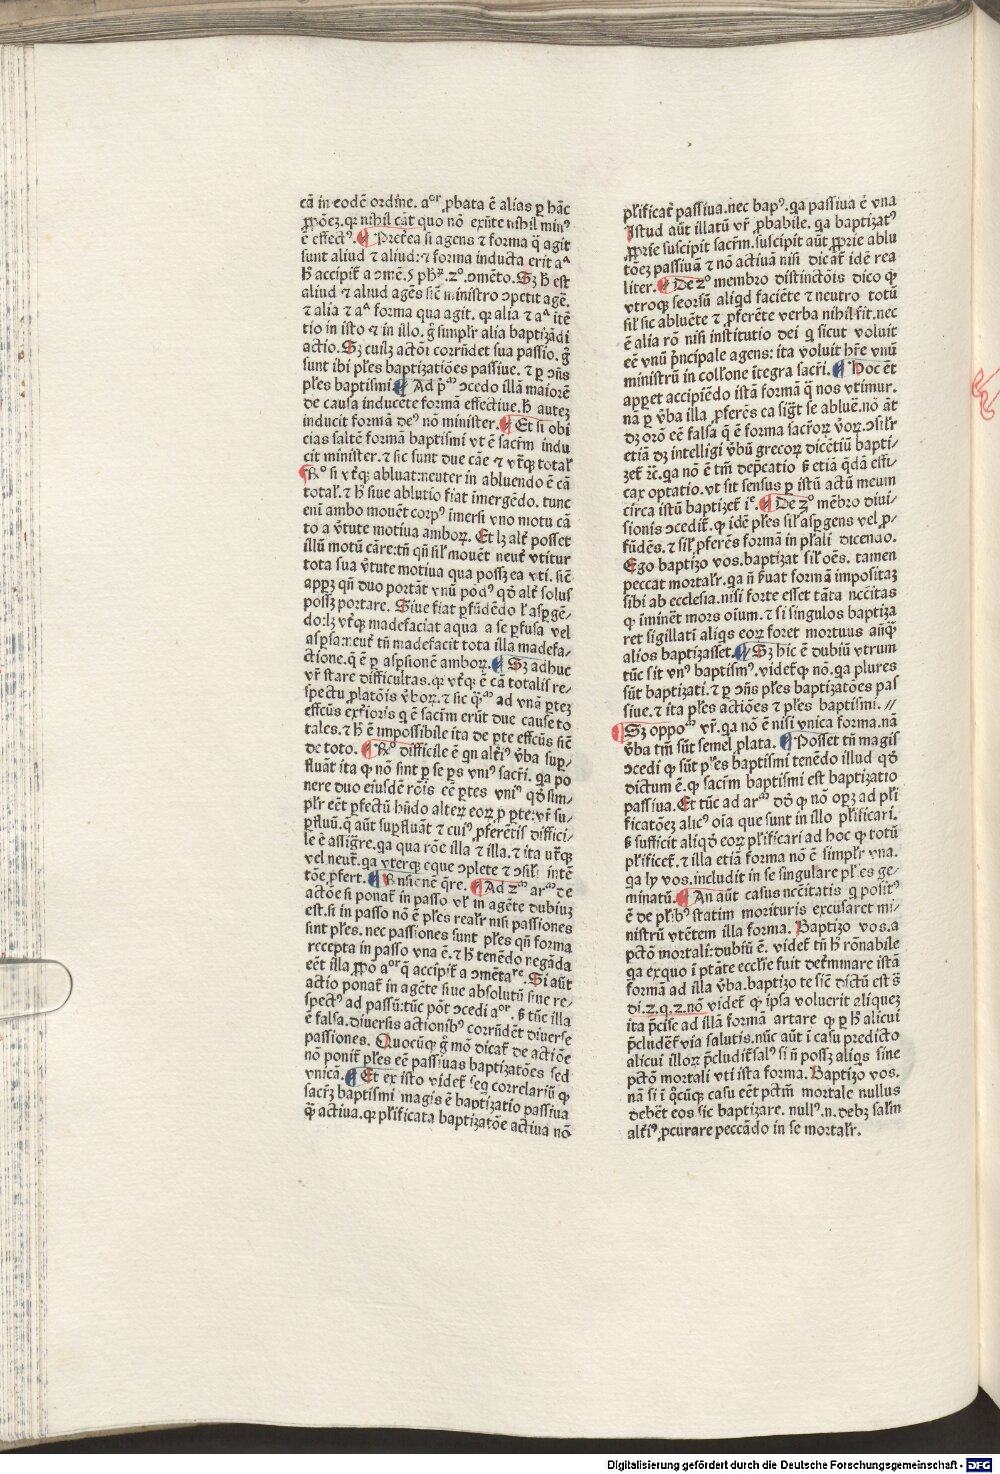 cā in eodē ordine. aᵒʳ ꝓbata ē alias ꝑ hāc
ꝓpōeꝫ. qꝛ nihil cāt quo nō exn̄te nihil minꝰ
ē effectꝰ. ¶ Pret̄ea si agens ⁊ forma q̄ agit
sunt aliud ⁊ aliud: ⁊ forma inducta erit aᴬ
aliud ⁊ aliud agēs sic̄ ministro ↄpetit agē.
⁊ alia ⁊ aᴬ forma qua agit. qꝛ alia ⁊ aᴬ itē
tio in isto ⁊ in illo. ḡ simplr̄ alia baptizādi
actio. Sꝫ cuilꝫ actōi corrn̄det sua passio. ḡ
sunt ibi ples baptizatiōes passiue. ⁊ ꝑ ↄn̄s
ples baptismi. ¶ Ad pᵐ ↄcedo illā maiorē
de causa inducēte formā effectiue. h̄ auteꝫ
inducit formā deꝰ nō minister. ¶ Et si obi
cias saltē formā baptismi vt ē sacr̄m indu
cit minister. ⁊ sic sunt due cāe ⁊ vt̄qꝫ total̄
Rᵒ si vt̄qꝫ abluat: neuter in abluendo ē cā
total̄. ⁊ h̄ siue ablutio fiat īmergēdo. tunc
enī ambo mouēt corpꝰ īmersi vno motu cā
to a v̄tute motiua amboꝝ. Et lꝫ alt̄ posset
illū motū cāre: tn̄ qn̄ sil̄ mouēt neut̄ vtitur
tota sua v̄tute motiua qua possꝫ ea vti. sic̄
appꝫ qn̄ duo portāt vnū pōdꝰ qᵭ alt̄ solus
possꝫ portare. Siue fiat ꝑfūdēdo l̄ aspgē-
do: lꝫ vt̄qꝫ madefaciat aqua a se ꝑfusa vel
aspsa: neut̄ tn̄ madefacit tota illa madefa-
ctione. q̄ ē ꝑ aspsionē amboꝝ. ¶ Sꝫ adhuc
vr̄ stare difficultas. qꝛ vt̄qꝫ ē cā totalis re-
spectu ꝓlatōis v̄boꝝ. ⁊ sic qᵐ ad vnā ꝑteꝫ
effcūs ext̄ioris q ē sacr̄m erūt due cause to
tales. ⁊ h̄ ē impossibile ita de ꝑte effcūs sic̄
de toto. ¶ Rᵒ difficile ē qn̄ alt̄iꝰ v̄ba sup-
fluāt ita ꝙ nō sint ꝑ se ꝑs vniꝰ sacr̄i. qa po
nere duo eiusdē rōis eē ꝑtes vniꝰ qᵭ sim-
plr̄ eēt ꝑfectū hn̄do alteꝝ eoꝝ ꝑ ꝑte: vr̄ su-
ꝑfluū. q̄ aūt supfluāt ⁊ cuiꝰ ꝓferētis diffici-
le ē assigr̄e. qa qua rōe illa ⁊ illa. ⁊ ita ut̄qꝫ
vel neut̄. qa vterqꝫ eque ↄplete ⁊ ↄsil̄ intē
tōe ꝓfert. ¶ Rn̄sionē q̄re. ¶ Ad 2ᵐ arᵐ de
actōe si ponat̄ in passo vl̄ in agēte dubiuꝫ
est. si in passo nō ē ples real̄r nisi passiones
sint ples. nec passiones sunt ples qn̄ forma
recepta in passo vna ē. ⁊ h̄ tenēdo negāda
eēt illa ꝓpō aᵒʳ q̄ accipit̄ a ↄmētaʳᵉ. Si aūt
actio ponat̄ in agēte siue absolutū sine re-
spectꝰ ad passū: tūc pōt ↄcedi aᵒʳ. ẞ tūc illa
ē falsa. diuersis actionibꝰ corrn̄dēt diuerse
passiones. Quocūqꝫ ḡ mō dicat̄ de actiōe
nō ponit̄ ples eē passiuas baptizatōes sed
vnicā. ¶ Et ex isto videt̄ seq̄ correlariū ꝙ
sacrꝫ baptismi magis ē baptizatio passiua
q̄ actiua. qꝛ plificata baptizatōe actiua nō
plificat̄ passiua. nec bapꝰ. qa passiua ē vna
Istud aūt illatū vr̄ ꝓbabile. qa baptizatꝰ
ꝓprie suscipit sacr̄m. suscipit aūt ꝓprie ablu
tōeꝫ passiuā ⁊ nō actiuā nisi dicat̄ idē rea
liter. ¶ De 2ᵒ membro distinctōis dico ꝙ
vtroqꝫ seorsū aliqd faciēte ⁊ neutro totū
sil̄ sic abluēte ⁊ ꝓferēte verba nihil fit. nec
ē alia rō nisi institutio dei q sicut voluit
eē vnū pn̄cipale agens: ita voluit hr̄e vnū
ministrū in coll̄one ītegra sacr̄i. ¶ Hoc ēt
apꝑet accipiēdo istā formā q̄ nos vtimur.
nā ꝑ v̄ba illa ꝓferēs ea sigt̄ se abluē. nō āt
dꝫ orō eē falsa q̄ ē forma sacr̄oꝝ v̄oꝝ. ↄsil̄r
etiā dꝫ intelligi v̄bū grecoꝝ dicētiū bapti-
zet̄ ⁊c. qa nō ē tm̄ depcatio ẞ etiā q̄dā effi-
cax optatio. vt sit sensus ꝑ istū actū meum
circa istū baptizet̄ iᵉ. ¶ De 3ᵒ mēbro diui-
sionis ↄcedit̄. ꝙ idē ples sil̄ aspgens vel ꝑ-
fūdēs. ⁊ sil̄ ꝓferēs formā in plali dicendo.
Ego baptizo vos. baptizat sil̄ oēs. tamen
peccat mortal̄r. qa n̄ ẞuat formā impositaꝫ
sibi ab ecclesia. nisi forte esset tāta nccītas
ꝙ īminēt mors oium. ⁊ si singulos baptiza
ret sigillati aliqs eoꝝ foret mortuus an̄qꝫ
alios baptizasset. ¶ Sꝫ hic ē dubiū vtrum
tūc sit vnꝰ baptismꝰ. videt̄qꝫ nō. qa plures
sūt baptizati. ⁊ ꝑ ↄn̄s ples baptizatōes pas
siue. ⁊ ita ples actiōes ⁊ ples baptismi. //
¶ Sꝫ oppoᵐ vr̄. qa nō ē nisi vnica forma. nā
v̄ba tm̄ sūt semel plata. ¶ Posset tn̄ magis
ↄcedi ꝙ sūt ples baptismi tenēdo illud qᵭ
dictum ē. ꝙ sacr̄m baptismi est baptizatio
passiua. Et tūc ad arᵐ dᵭ ꝙ nō opꝫ ad pli
ficatōeꝫ alicꝰ oīa que sunt in illo plificari.
ẞ sufficit aliqᵭ eoꝝ plificari ad hoc ꝙ totū
plificet̄. ⁊ illa etiā forma nō ē simpl̄r vna.
qa ly vos. includit in se singulare ples ge-
minatū. ¶ An aūt casus nccēitatis q positꝰ
ē de plibꝰ statim morituris excusaret mi-
nistrū vtētem illa forma. Baptizo vos. a
pctō mortali: dubiū ē. videt̄ tn̄ h̄ rōnabile
qa exquo ī ptāte eccl̄ie fuit det̄minare istā
formā ad illa v̄ba. baptizo te sic̄ dictū est s̄
di. 2. q. 2. nō videt̄ ꝙ ipsa voluerit aliquez
ita pcise ad illā formā artare ꝙ ꝑ h̄ alicui
pcludet̄ via salutis. nūc aūt ī casu predicto
alicui illoꝝ pcludit̄ salꝰ si n̄ possꝫ aliqs sine
pctō mortali vti ista forma. Baptizo vos.
nā si ī qcūqꝫ casu eēt pctm̄ mortale nullus
debēt eos sic baptizare. nullꝰ. n. debꝫ sal̄m
alt̄iꝰ ꝓcurare peccādo in se mortal̄r.
Digitalisierung gefördert durch die Deutsche Forschungsgemeinschaft - DFG